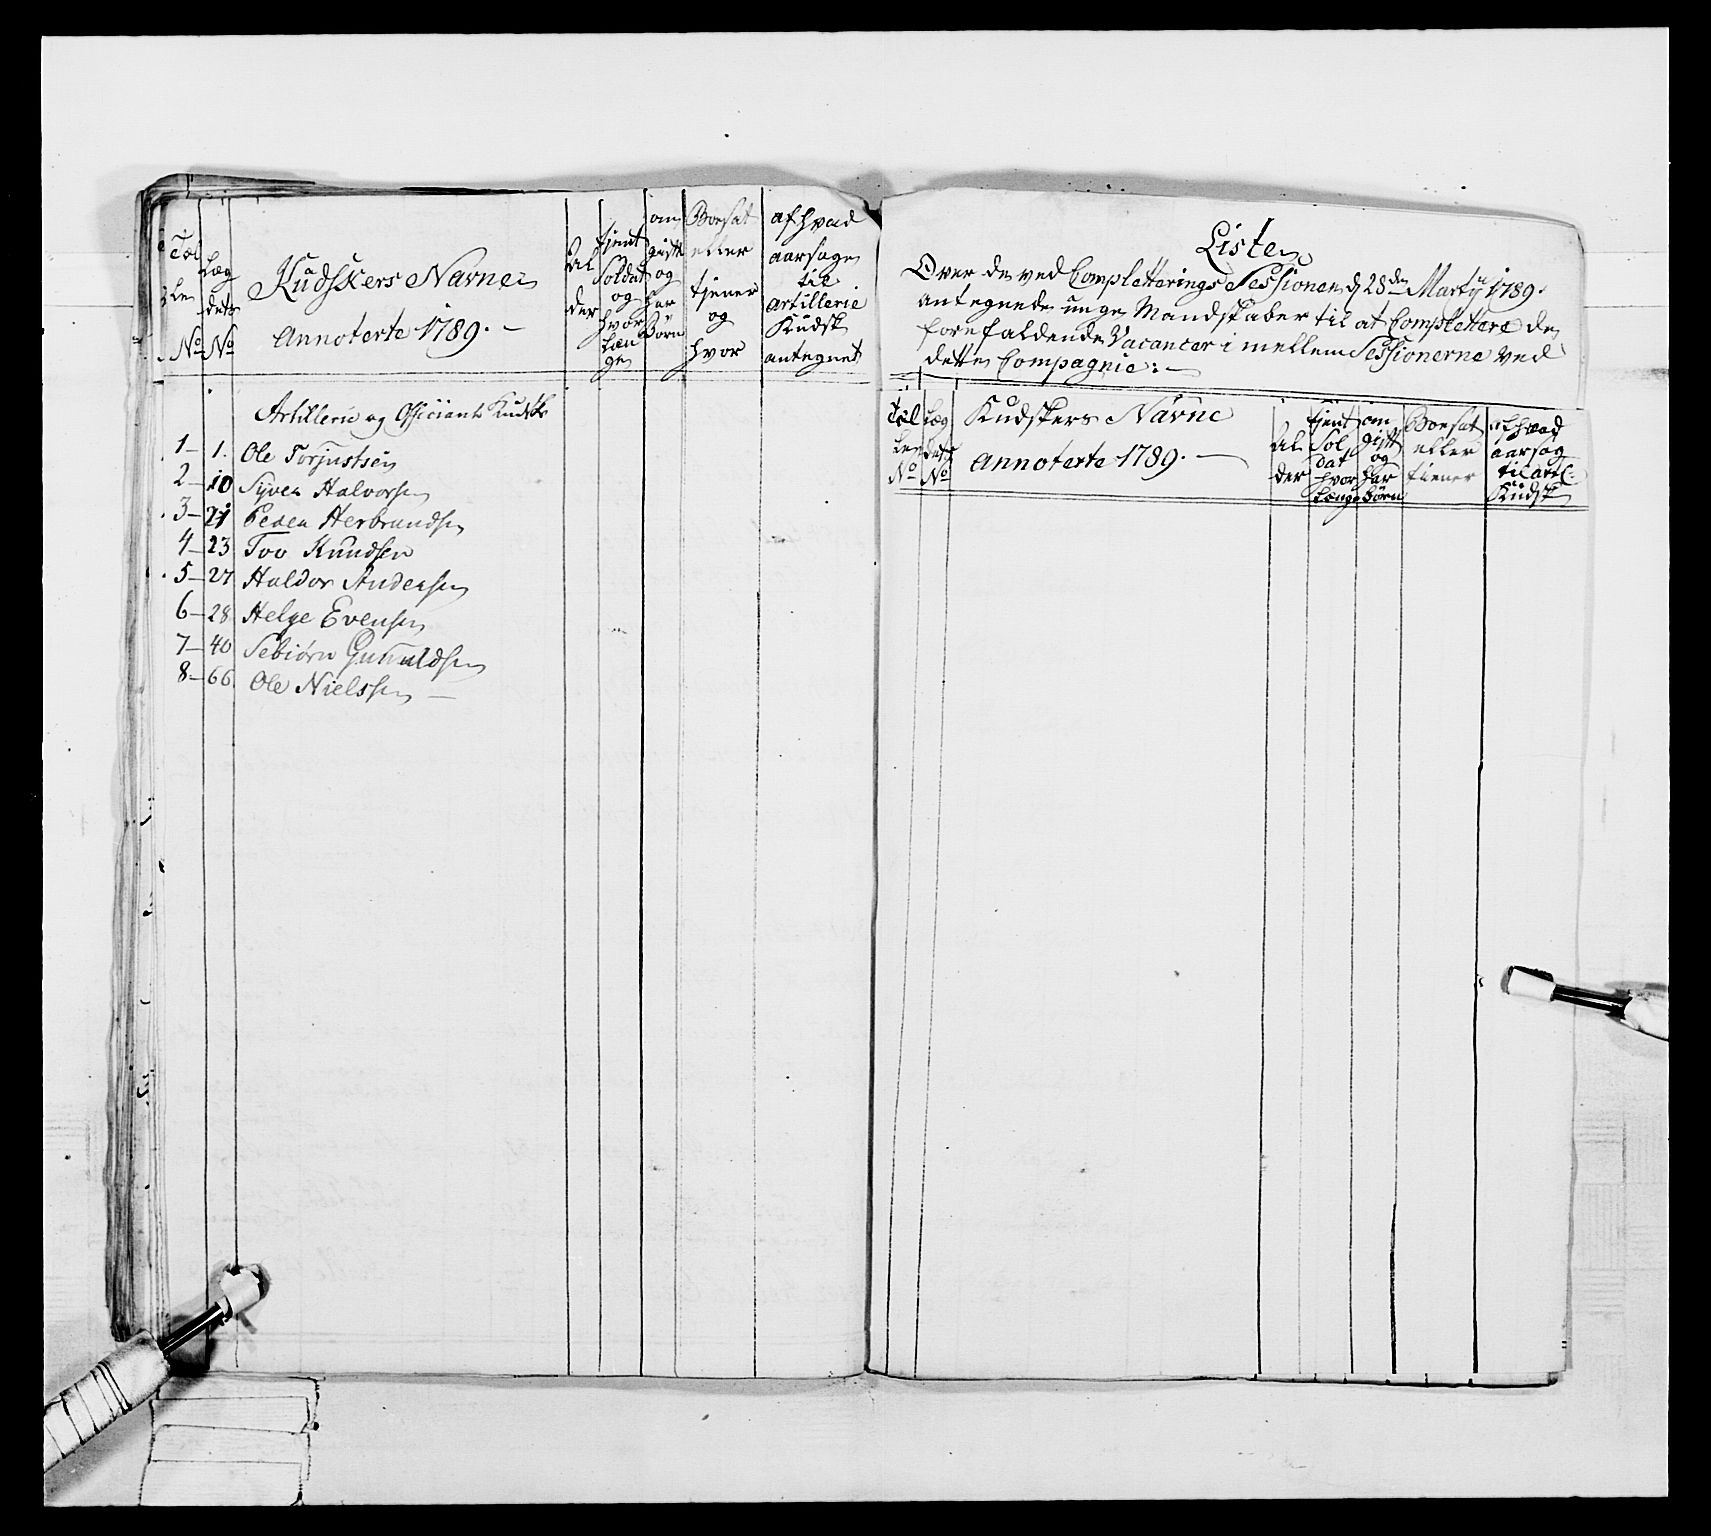 Tal len No
Læg dets No
Kudskers Navne
Annoterte 1789.
Al der
tjent Soldat og hvor læn ge
om gift og har Børn
Boesat eller tjener og hvor
af hvad aarsage til Artillerie Kudsk antegnet
Artillerie og Officiants Kudske
1 – 1. Ole Torjustsen
2 – 10 Syver Halvorsen
3 – 21 Peder Herbrandsen
4 – 23 Tov Knudsen
5 – 27 Haldor Andersen
6 – 28 Helge Evensen
7 – 40 Sebiørn Gunuldsen
8 – 66. Ole Nielssen –
Liste
Over de ved Completterings Sessionen d 28de Martÿ 1789.
antegnede unge Mandskaber til at Complettere de
forefaldende Vacancer i mellem Sessionerne ved
dette Compagnie: –
Tal len No
Læg dets No
Kudskers Navne
Annoterte 1789. –
Al der
tjent Sol dat hvor længe
om gift og har Børn
Boesat eller tiener
af hvad aarsag til artl: Kudsk